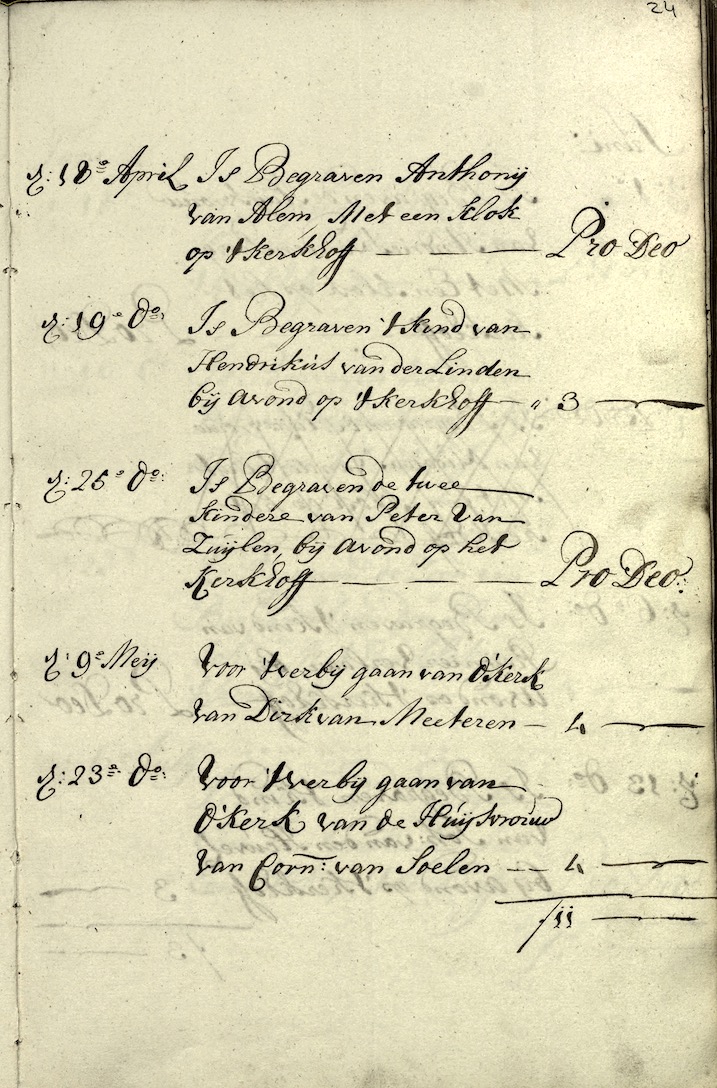 24
d: 18e April Is Begraven Anthonij
van Alem, Met een klok
op 't kerkhoff — Pro Deo
d: 19e do: Is Begraven 't kind van
Hendrikus van der Linden
bij avond op 't kerkhoff — " 3 —
d: 25e do: Is Begraven de twee
kindere van Peter van
Zuijlen, bij avond op het
Kerkhoff — Pro Deo:
d: 9e Meij Voor 't verbij gaan van d'kerk
van Dirk van Meeteren — 4 —
d: 23e do: Voor 't verbij gaan van
d'kerk van de Huijsvrouw
van Corn: van Soelen — 4 —
/11 —